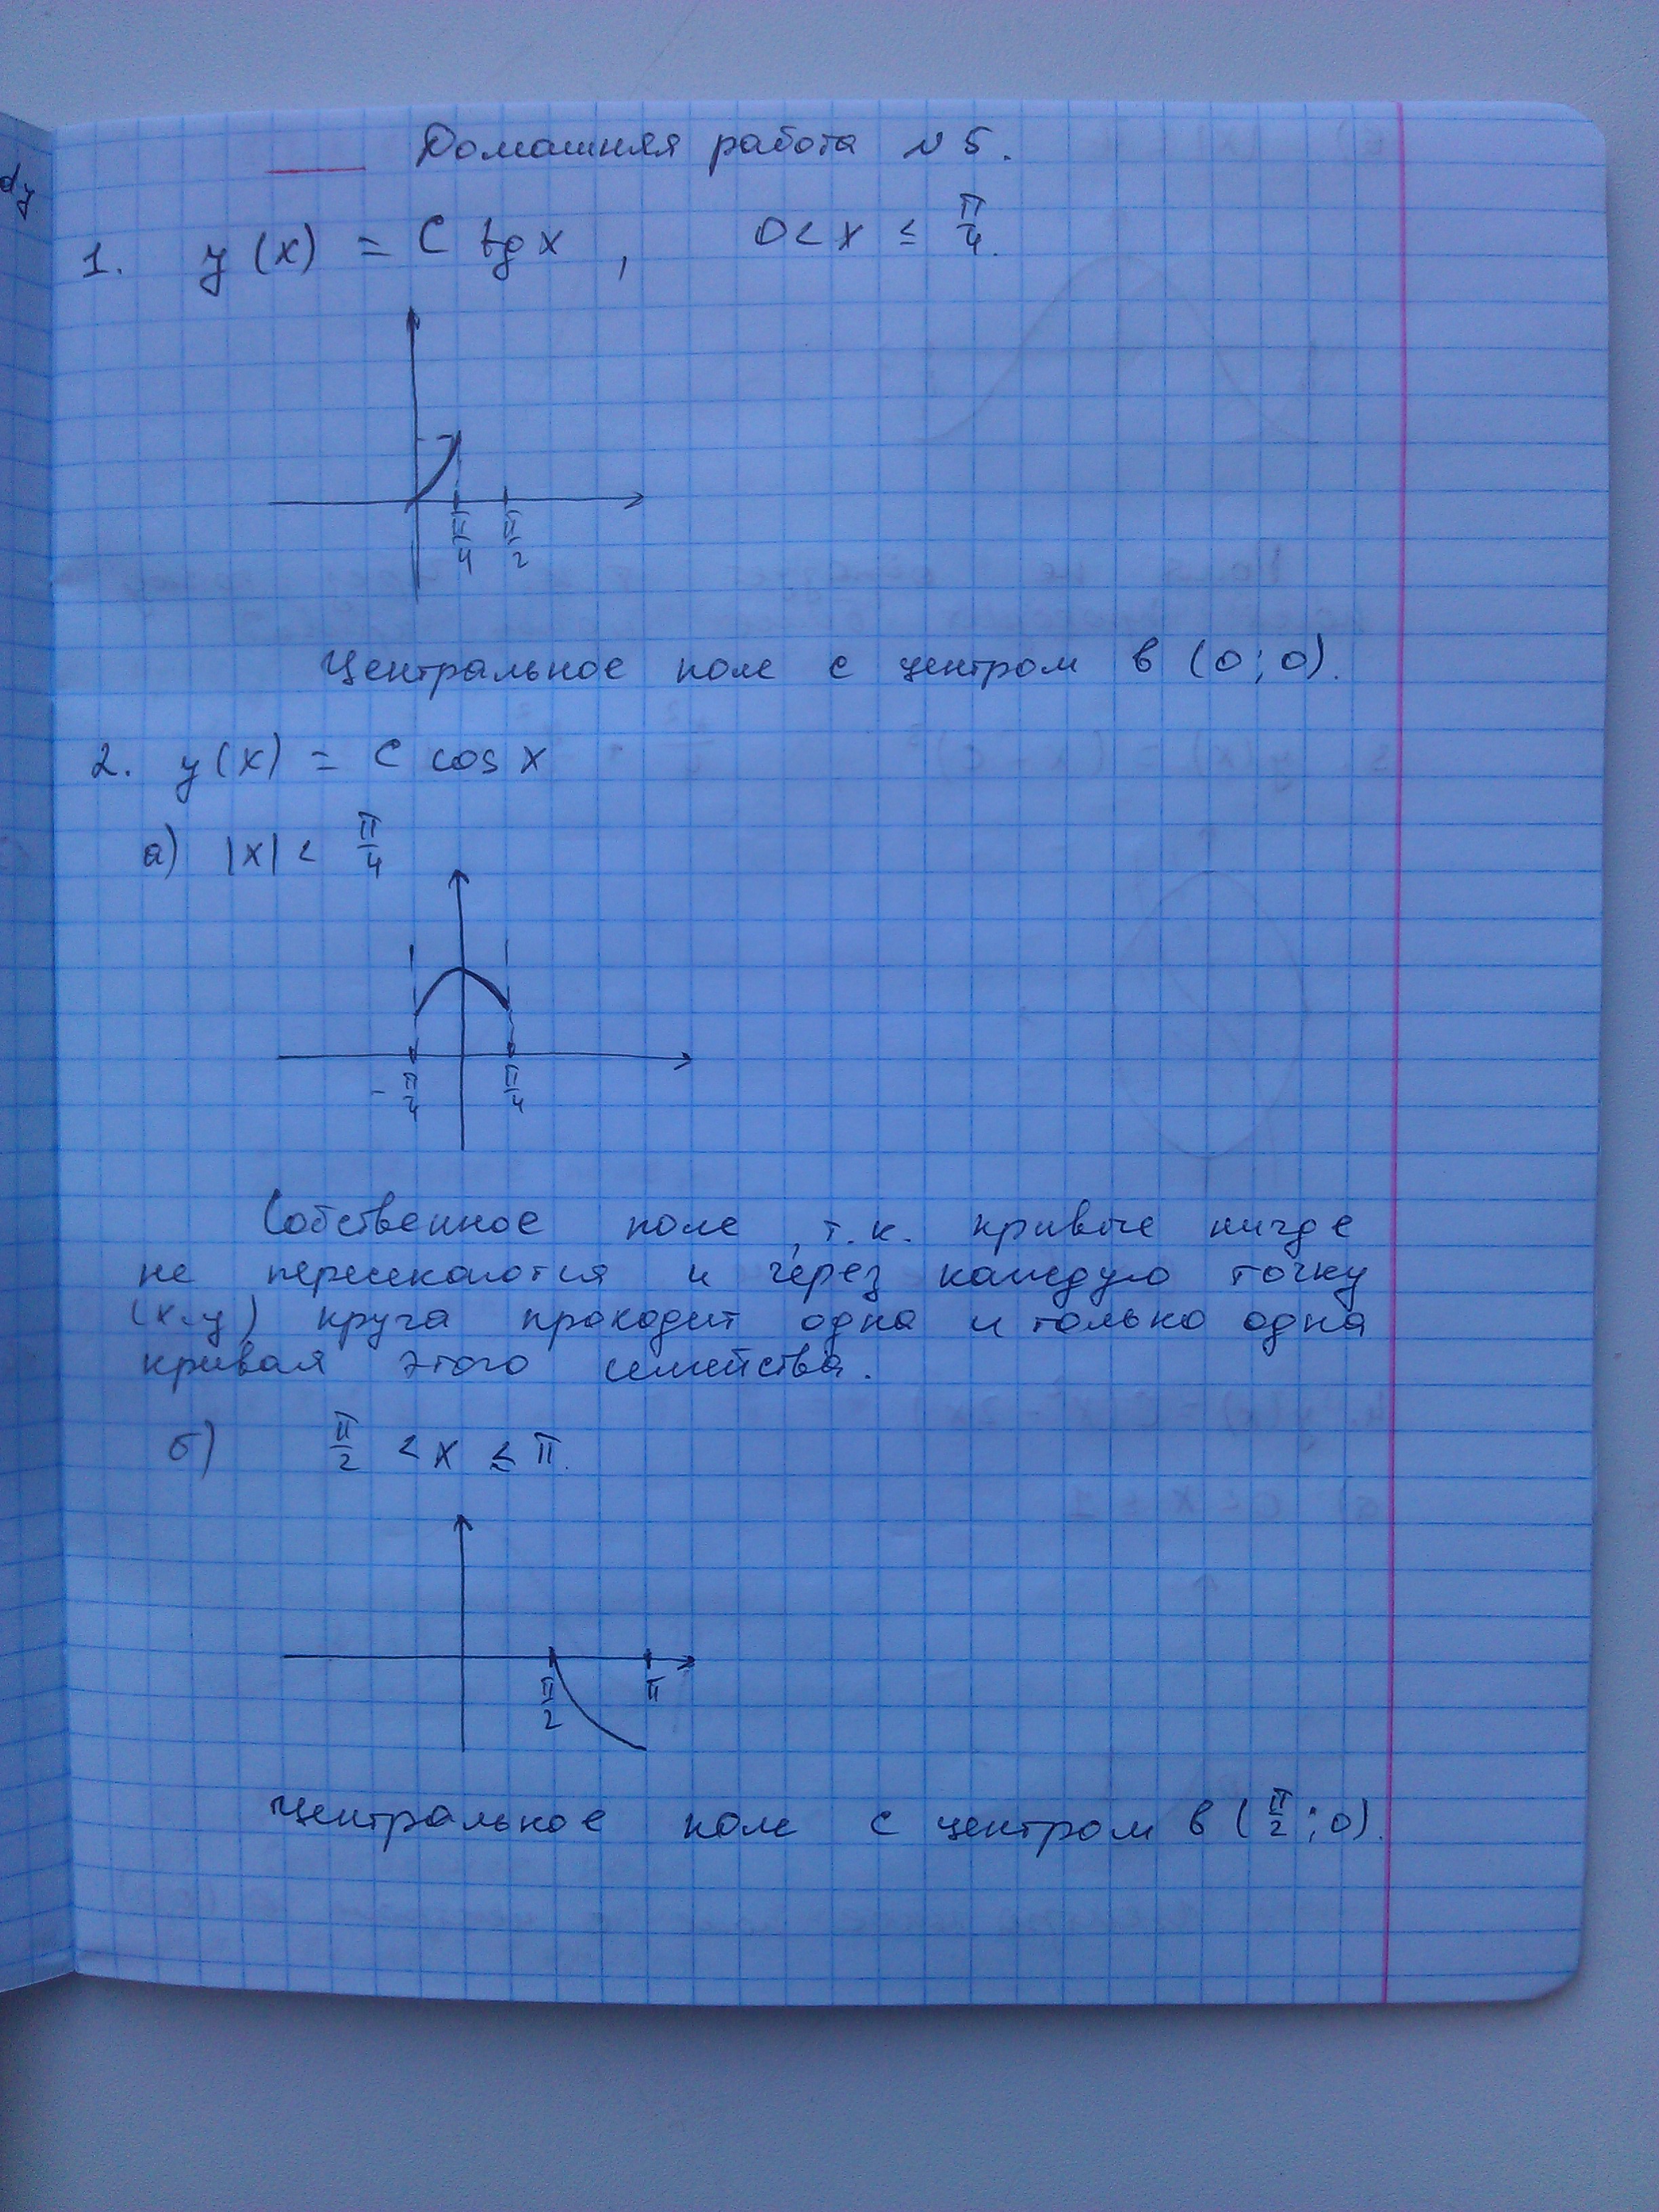 dy
Домашняя работа №5.
1. y(x) = C tg x , 0 < x ≤ π/4.
π/4 π/2
Центральное поле с центром в (0;0).
2. y(x) = C cos x
а) |x| < π/4
-π/4 π/4
Собственное поле, т.к. кривые нигде
не пересекаются и через каждую точку
(x,y) круга проходит одна и только одна
кривая этого семейства.
б) π/2 < x ≤ π.
π/2 π
Центральное поле с центром в (π/2;0).